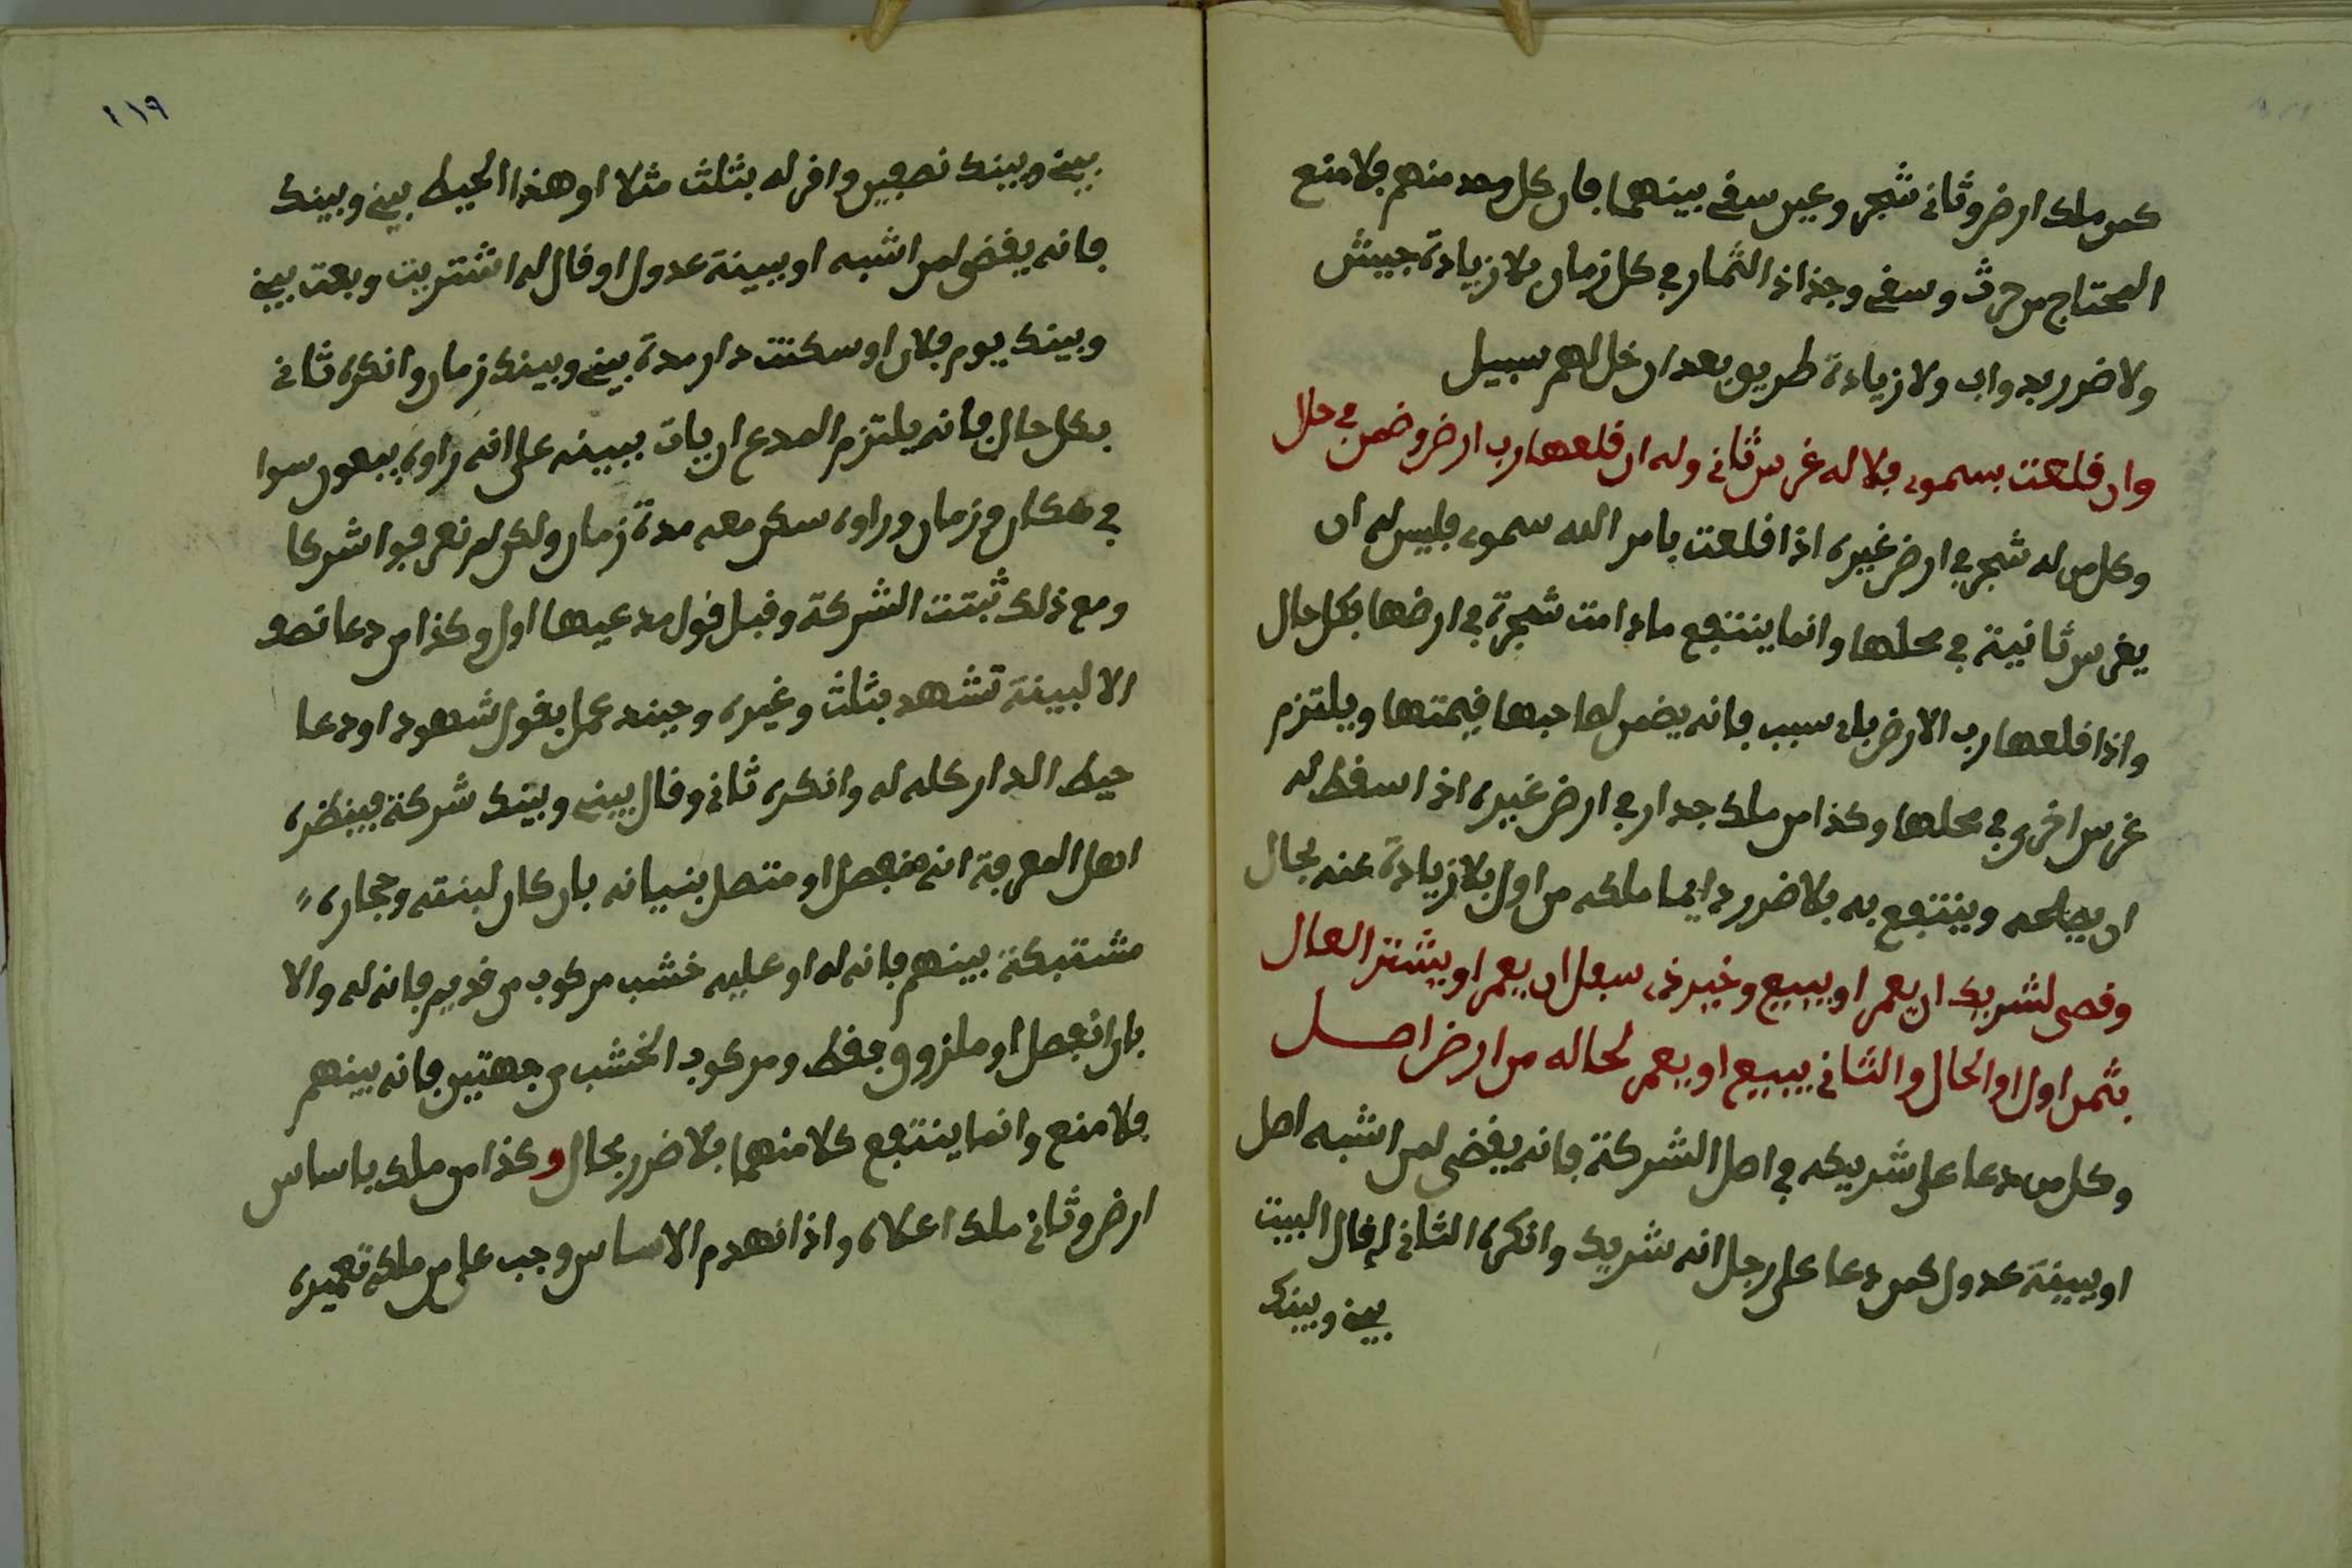 كمن ملك ارض وثاني شجر وعين سقي بينهما فان كل وحد منهم فلا منع
المحتاج من حرث وسقي وجذاذ الثمار في كل زمان بلا زيادة جيش
ولا ضرر بدواب ولا زيادة طريق بعد ان خل لهم سبيل
وان قلعت بسموى فلا له غرس ثاني وله ان قلعها رب ارض وضمن في حال
وكل من له شجر في ارض غيره اذا قلعت بامر الله سموى فليس له ان
يغرس ثانية في محلها وانما ينتفع مادامت شجرة في ارضها بكل حال
واذا قلعها رب الارض باى سبب فانه يضمن لصاحبها قيمتها ويلتزم
غرس اخرى في محلها وكذا من ملك جدار في ارض غيره اذا اسقط له
ان يصلحه وينتفع به بلا ضرر دايما ملكه من اول بلا زيادة عنه بحال
وقصى لشريك ان يعمر او يبيع وخير ذى سفل ان يعمر او يشتر العال
بثمن اول او الحال والثاني يبيع او يعمر لحاله من ارض اصل
وكل من دعا على شريكه في اصل الشركة فانه يقضى لمن اشبه اصل
او ببينة عدول كمن دعا على رجل انه شريك وانكره الثاني له قال البيت
بيني وبينك
٢١٩
بيني وبينك نصفين واقر له بثلث مثلا او هذا الحيط بيني وبينك
فانه يقضى لمن اشبه او ببينة عدول او قال له اشتريت وبعت بيني
وبينك يوم فلان او سكنت دار مدة بيني وبينك زمان وانكره ثاني
بكل حال فانه يلتزم المدع ان يات ببينه على انه راوه يبيعون سوا
في مكان وزمان وراوه سكن معه مدة زمان ولكن لم تعرفوا شركا
ومع ذلك ثبتت الشركة وقبل قول مدعيها اول وكذا من دعا نصف
الا لبينة تشهد بثلث وغيره وحيند عمل بقول شهود او دعا
حيط الدار كله له وانكره ثاني وقال بيني وبينك شركة فينظره
اهل المعرفة انه منفصل او متصل بنيانه بان كان لبنته وحجاره
مشتبكة بينهم فانه له او عليه خشب مركوب من قديم فانه له والا
بان انفصل او ملزوق فقط ومركوب الخشب من جهتين فانه بينهم
فلا منع وانما ينتفع كلا منهما بلا ضرر بحال وكذا من ملك باساس
ارض وثاني ملك اعلاه واذا انهدم الاساس وجب على من ملكه تعميره